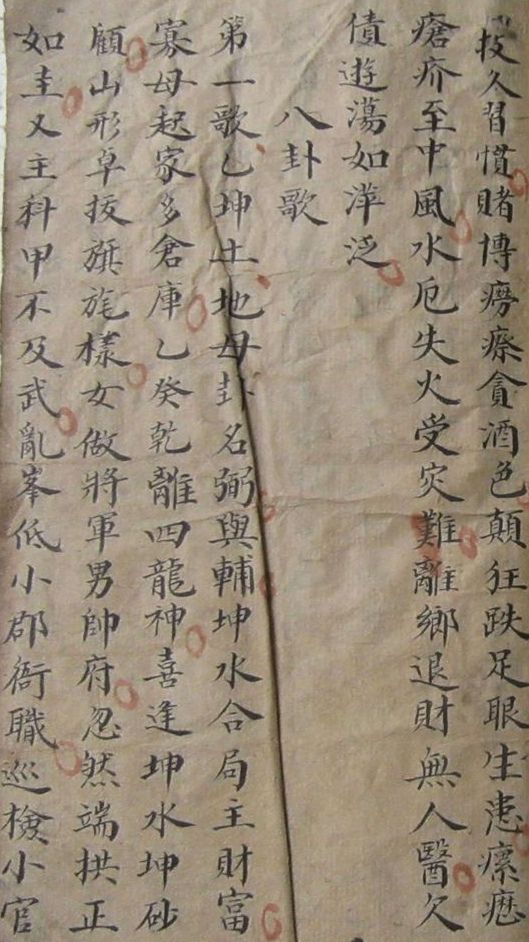 技久習慣賭博癆瘵貪酒色顛狂跌足眼生患瘰癧
瘡疥至中風水厄失火受灾難離鄉退財無人醫欠
債遊蕩如萍泛
八卦歌
第一歌乙坤土地母卦名弼與輔坤水合局主財富
寡母起家多倉庫乙癸乾離四龍神喜逢坤水坤砂
顧山形卓拔旗旄樣女做將軍男帥府忽然端拱正
如圭又主科甲不及武亂峯低小郡衙職巡檢小官